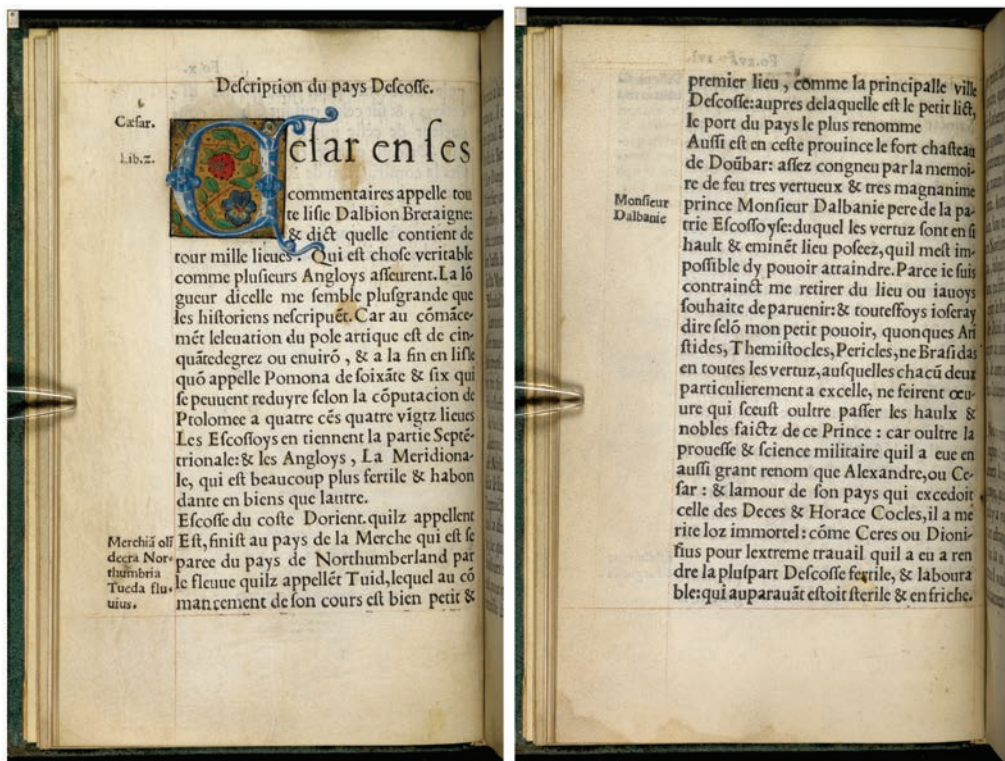 Deſcription du pays Deſcoſſe.
Cæſar.
Lib.2.
Ceſar en ſes
commentaires appelle tou
te liſle Dalbion Bretaigne:
& dict quelle contient de
tour mille lieues. Qui eſt choſe veritable
comme pluſieurs Angloys aſſeurent. La lõ
gueur dicelle me ſemble pluſgrande que
les hiſtoriens neſcripuẽt. Car au cõmãce-
mẽt leleuation du pole artique eſt de cin-
quãtedegrez ou enuirõ, & a la fin en liſle
quõ appelle Pomona de ſoixãte & ſix qui
ſe peuuent reduyre ſelon la cõputacion de
Ptolomee a quatre cẽs quatre vigtz lieues
Les Eſcoſſoys en tiennent la partie Septẽ-
trionale: & les Angloys, La Meridiona-
le, qui eſt beaucoup plus fertile & habon
dante en biens que lautre.
Eſcoſſe du coſte Dorient. quilz appellent
Merchiã olĩ
decra Nor-
thumbria
Tueda flu-
uius.
Eſt, finiſt au pays de la Merche qui eſt ſe
paree du pays de Northumberland par
le fleuue quilz appellẽt Tuid, lequel au cõ
mancement de ſon cours eſt bien petit &
premier lieu, comme la principalle ville
Deſcoſſe: aupres delaquelle eſt le petit lict,
le port du pays le plus renomme
Auſſi eſt en ceſte prouince le fort chaſteau
de Doũbar: aſſez congneu par la memoi-
re de feu tres vertueux & tres magnanime
Monſieur
Dalbanie
prince Monſieur Dalbanie pere de la pa-
trie Eſcoſſoyſe: duquel les vertuz ſont en ſi
hault & eminẽt lieu poſeez, quil meſt im-
poſſible dy pouoir attaindre. Parce ie ſuis
contrainct me retirer du lieu ou iauoys
ſouhaite de paruenir: & touteſfoys ioſeray
dire ſelõ mon petit pouoir, quonques Ari
ſtides, Themiſtocles, Pericles, ne Braſidas
en toutes les vertuz, auſquelles chacũ deux
particulierement a excelle, ne feirent œu-
ure qui ſceuſt oultre paſſer les haulx &
nobles faictz de ce Prince: car oultre la
proueſſe & ſcience militaire quil a eue en
auſſi grant renom que Alexandre, ou Ce-
ſar: & lamour de ſon pays qui excedoit
celle des Deces & Horace Cocles, il a me
rite loz immortel: cõme Ceres ou Dioni-
ſius pour lextreme trauail quil a eu a ren
dre la pluſpart Deſcoſſe fertile, & laboura
ble: qui auparauãt eſtoit ſterile & en friche.